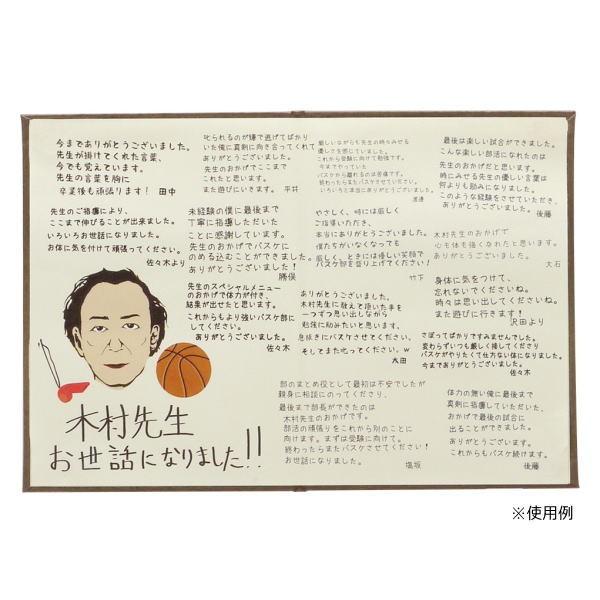 今までありがとうございました。
先生が掛けてくれた言葉、
今でも覚えています。
先生の言葉を胸に
卒業後も頑張ります! 田中
先生のご指導により、
ここまで伸びることが出来ました。
いろいろお世話になりました。
お体に気を付けて頑張ってください。
佐々木より
叱られるのが嫌で逃げてばかり
いた俺に真剣に向き合ってくれて
ありがとうございました。
先生のおかげでここまで
これたと思います。
また遊びにいきます。 平井
未経験の僕に最後まで
丁寧に指導しただいた
ことに感謝しています。
先生のおかげでバスケに
のめる込むことができました。
ありがとうございました!
勝俣
先生のスペシャルメニュー
のおかげで体力が付き、
結果が出せたと思います。
これからもより強いバスケ部に
してください。
ありがとうございました。
佐々木
木村先生
お世話になりました!!
厳しいながらも先生の時々みせる
優しさを感じていました。
これから受験に向けて勉強です。
今までやっていた
バスケから離れるのは苦痛です。
終わったらまたバスケさせてください。
いろいろと本当にありがとうございました。
渡邊
やさしく、時には厳しく
ご指導いただき、
本当にありがとうございました。
僕たちがいなくなっても
厳しく、ときには優しい笑顔で
バスケ部を盛り上げてください!
竹下
ありがとうございました。
木村先生に教えて頂いた事を
一つずつ思い出しながら
勉強に励みたいと思います。
息抜きにバスケさせてください。
そしてまた叱ってください。w
太田
部のまとめ役として最初は不安でしたが
親身に相談にのってくださり、
最後まで部長ができたのは
木村先生のおかげです。
部活の頑張りをこれから別のことに
向けます。まずは受験に向けて。
終わったらまたバスケさせてください!
お世話になりました。
塩坂
最後は楽しい試合ができました。
こんな楽しい部活になれたのは
先生のおかげだと思います。
時にみせる先生の優しい言葉は
何よりも励みになりました。
このような経験をさせていただき、
ありがとうございました。
後藤
木村先生のおかげで
心も体も強くなれたと思います。
ありがとうございました。
大石
身体に気をつけて、
忘れないでくださいね。
時々は思い出してくださいね。
また遊びに行きます!
沢田より
さぼってばかりですみませんでした。
変わらずいつも厳しく接してくださり
バスケがやりたくて仕方ない体になりました。
今までありがとうございました。
佐々木
体力の無い俺に最後まで
真剣に指導していただいた、
おかげで最後の試合に
出ることができました。
ありがとうございます。
これからもバスケ続けます。
後藤
※使用例